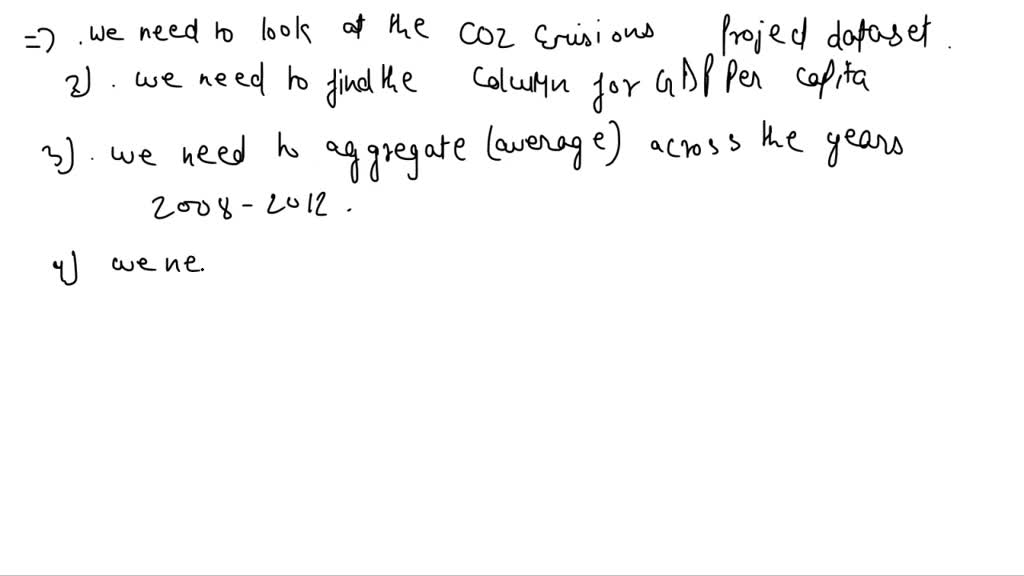 => . we need to look at the CO2 Emissions Project dataset .
2) . we need to find the column for GDP Per capita
3) . we need to aggregate (average) across the years
2008 - 2012 .
4) we ne.